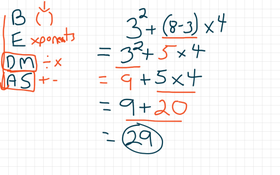 B ( )
E xponents
DM ÷ x
AS + -
3² + (8-3) × 4
= 3² + 5 × 4
= 9 + 5 × 4
= 9 + 20
= 29